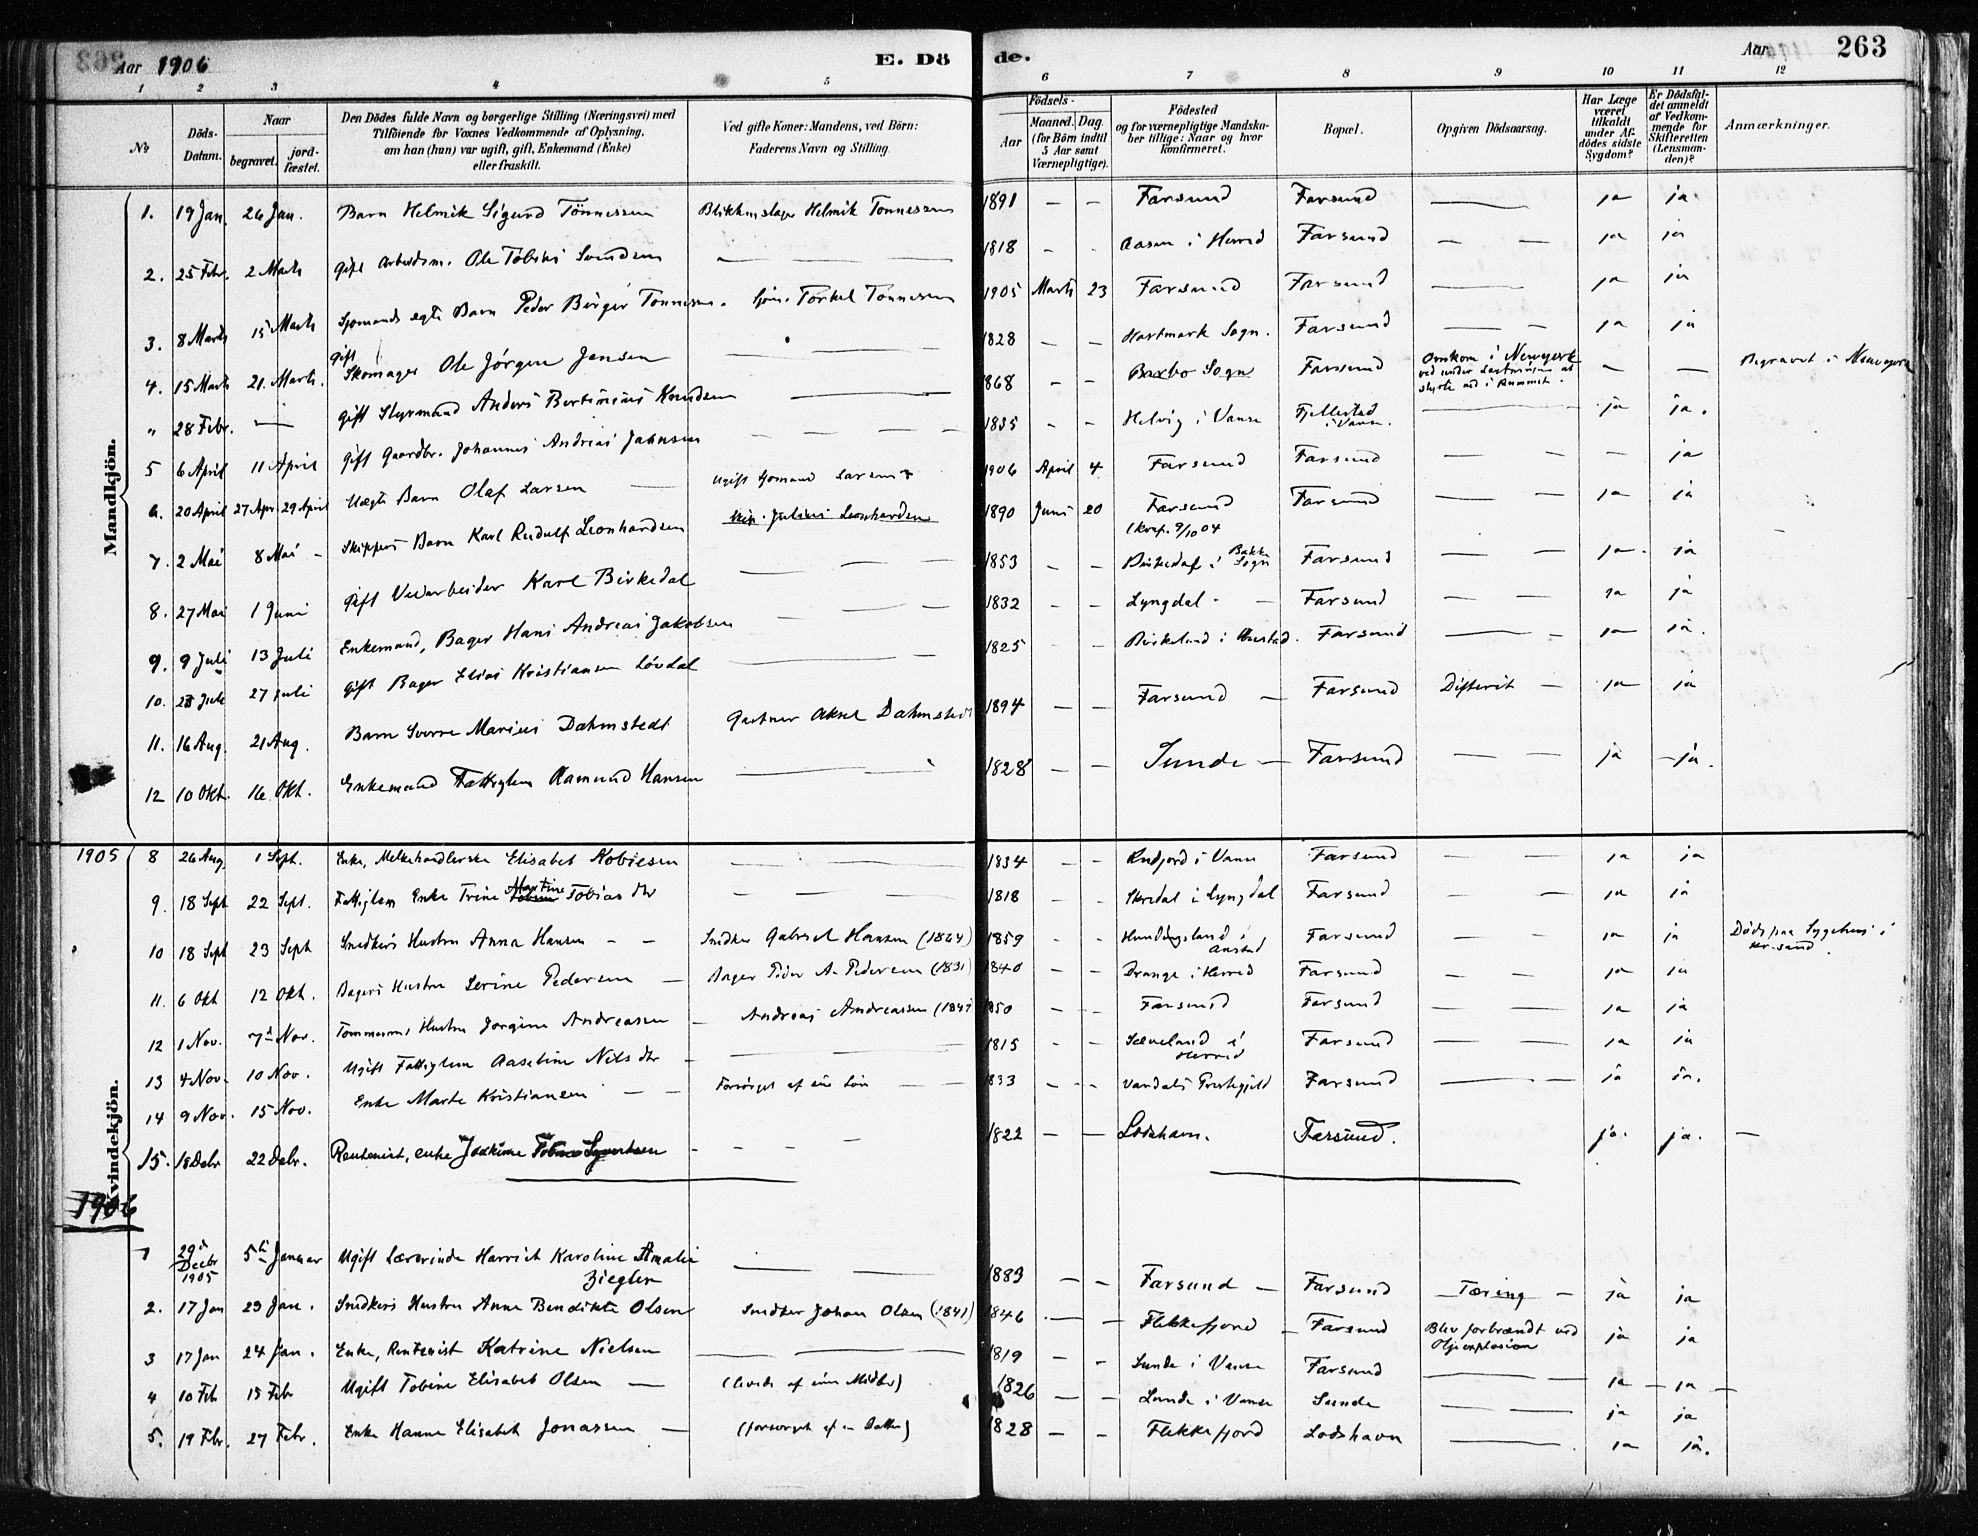 Aar 1906 E. Dö
de. Aar 263
1 2 3 4 5 6 7 8 9 10 11 12
No
Döds-Datum.
Naar
begravet. jord-fæstet.
Den Dödes fulde Navn og borgerlige Stilling (Næringsvei) med
Tilföiende for Voxnes Vedkommende af Oplysning,
om han (hun) var ugift, gift, Enkemand (Enke)
eller fraskilt.
Ved gifte Koner: Mandens, ved Börn:
Faderens Navn og Stilling.
Födsels-
Aar
Maaned. Dag.
(for Börn indtil
5 Aar samt
Værnepligtige).
Födested
og for værnepligtige Mandska-
ber tillige: Naar og hvor
konfirmeret.
Bopæl.
Opgiven Dödsaarsag.
Har Læge
været
tilkaldt
under Af-
dödes sidste
Sygdom?
Er Dödsfal-
det anmeldt
af Vedkom-
mende for
Skifteretten
(Lensman-
den)?
Anmærkninger.
Mandkjön.
1. 19 Jan. 26 Jan. Barn Helmik Sigurd Tönnessen Blikkenslager Helmik Tonnessen 1891 — — Farsund Farsund — ja ja
2. 25 Febr. 2 Marts Gift Arbeidsm. Ole Tobias Svendsen — 1818 - - Aasen i Herred Farsund — — ja ja
3. 8 Marts 15 Marts Sjömands egte Barn Peder Birger Tonnessen. Sjöm. Torkel Tonnessen 1905 Marts 23 Farsund Farsund — ja ja
4. 15 Marts 21. Marts. gift Skomager Ole Jörgen Jensen — 1828 — — Hartmark Sogn. Farsund — — ja ja
" 28 Febr. — Gift Styrmand Anders Bertinius Knudsen — 1868 - - Sogn Farsund Omkom i Newyork ved under Lastningen at styrte ned i Rummet. — — Begravet i Newyork
5 6 April 11 April Gift Gaardbr. Johannes Andreas Jahnsen — — 1835 - - Helvig i Vanse Fjellestad i Vanse. — ja ja.
6. 20 April 27 Apr 29 April Uegte Barn Olaf Larsen — Ugift Sjömand Larsen 1906 April 4 Farsund Farsund — — — ja
7. 2 Mai 8 Mai - Skippers Barn Karl Rudolf Leonhardsen Skip. Julius Leonhardsen 1890 Juni 20 Farsund (konf. 9/10 04 Farsund — — ja ja
8. 27 Mai 1 Juni Gift Veiarbeider Karl Birkedal — — 1853 - - Birkedal i Bakke Sogn Farsund — — ja. ja
9. 9 Juli 13 Juli Enkemand, Bager Hans Andreas Jakobsen — — — 1832 - - Lyngdal - — Farsund — — ja ja
10. 23 Juli 27 Juli Gift Bager Elias Kristiansen Lövdal — 1825 - - Birkeland i . Farsund — — ja ja.
11. 16 Aug. 21 Aug. Barn Sverre Marius Dahmstedt Gartner Aksel Dahmstedt 1894 — — Farsund — Farsund Difterit — ja ja
12 10 Okt. 16 Okt. Enkemand Fattiglem Aamund Hansen — — 1828 - - Sunde — Farsund — — ja — ja.
Kvindekjön.
1905 8 26 Aug 1 Sept. Enke, Melkehandlerske Elisabet Tobiesen — — 1834 - - i Vanse Farsund — — ja ja
9. 18 Sept 22 Sept. Fattiglem Enke Trine Martine Tobias dtr — — 1818 - - i Lyngdal Farsund — — ja ja
10 18 Sept 23 Sept Snedkers Hustru Anna Hansen - - Snedker Gabriel Hansen (1864) 1859 - - i Farsund — — ja ja Död paa Sygehus i Kr.sand.
11. 6 Okt 12 Okt. Bagers Hustru Serine Pedersen — Bager Peder A. Pedersen (1831) 1840 - - Drange i Herred Farsund — — ja ja
12 1 Nov. 7de Nov. Tömmerm. Hustru Jorgine Andreassen — Andreas Andreassen (1849 1850 - - Farsund Farsund — — ja ja
13 4 Nov. 10 Nov. Ugift Fattiglem Aaseline Nilsdtr - — 1815 - - i Herred Farsund — — ja ja
14 9 Nov. 15 Nov. Enke Marte Kristiansen — — Forsörget af sin Sön — — 1833 - - Farsund — — ja ja.
15. 18 Debr 22 Debr. Rentenist, enke Joakime - - - — 1822 — — Lodshavn. Farsund. ja. ja. —
1906
1 29de Decbr 1905 5te Januar Ugift Lærerinde Harriet Karoline Amalie Ziegler — — 1883 - - Farsund — Farsund Tæring — ja ja
2. 17 Jan 23 Jan. Snedkers Hustru Anne Bendikte Olsen Snedker Johan Olsen (1841) 1846 — — Flekkefjord — Farsund Blev forbrændt ved Oljeexplosion ja ja
3 17 Jan 24 Jan. Enke, Rentenist Katrine Nielsen — — 1819 - - Sunde i Vanse Farsund — — ja — ja —
4 10 Feb 15 Feb Ugift Tobine Elisabet Olsen — (levede af sine Midler) 1826 — - Lunde i Vanse Sunde — ja ja
5. 19 Febr. 27 Febr. Enke Hanne Elisabet Jonassen — (forsörget af en Datter) 1828 — - Flekkefjord Lodshavn — ja ja.